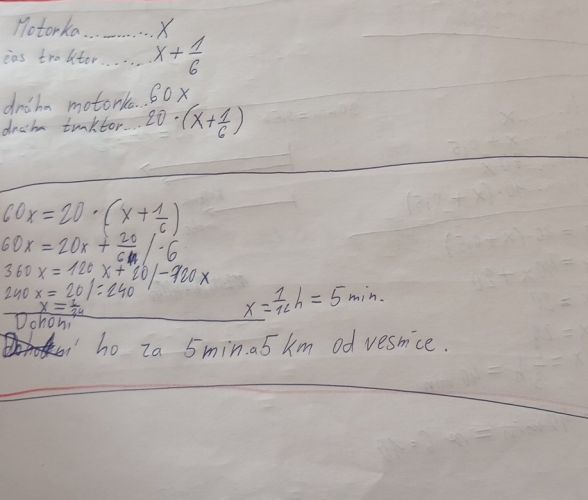 Motorka............x
čas traktor.......x+1/6
dráha motorka...60x
dráha traktor...20·(x+1/6)
60x=20·(x+1/6)
60x=20x+20/6 /·6
360x=120x+20/-120x
240x=20/:240
x=1/24
x=1/12h=5min.
Dohoní
ho za 5min.a5 km od vesnice.